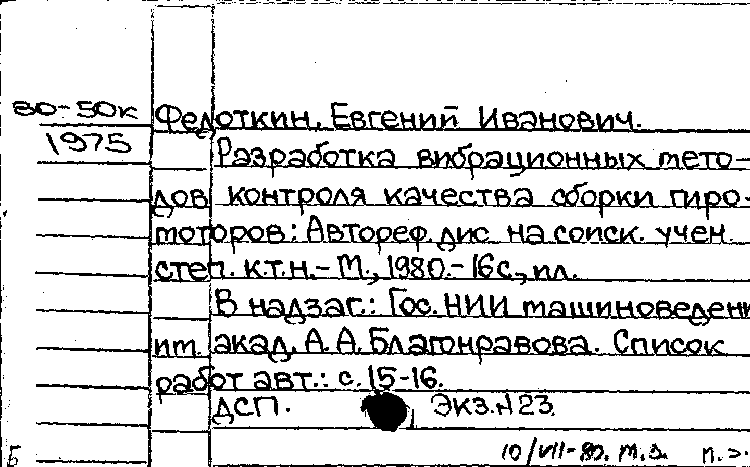 80-50к
Федоткин, Евгений Иванович.
1975
Разработка вибрационных мето-
дов контроля качества сборки гиро-
моторов: Автореф. дис. на соиск. учен.
степ. к.т.н. - М., 1980. - 16с., ил.
В надзаг.: Гос. НИИ машиноведени
им. акад. А. А. Благонравова. Список
работ авт.: с. 15-16.
ДСП. Экз. №23.
10/VII-80.
Б